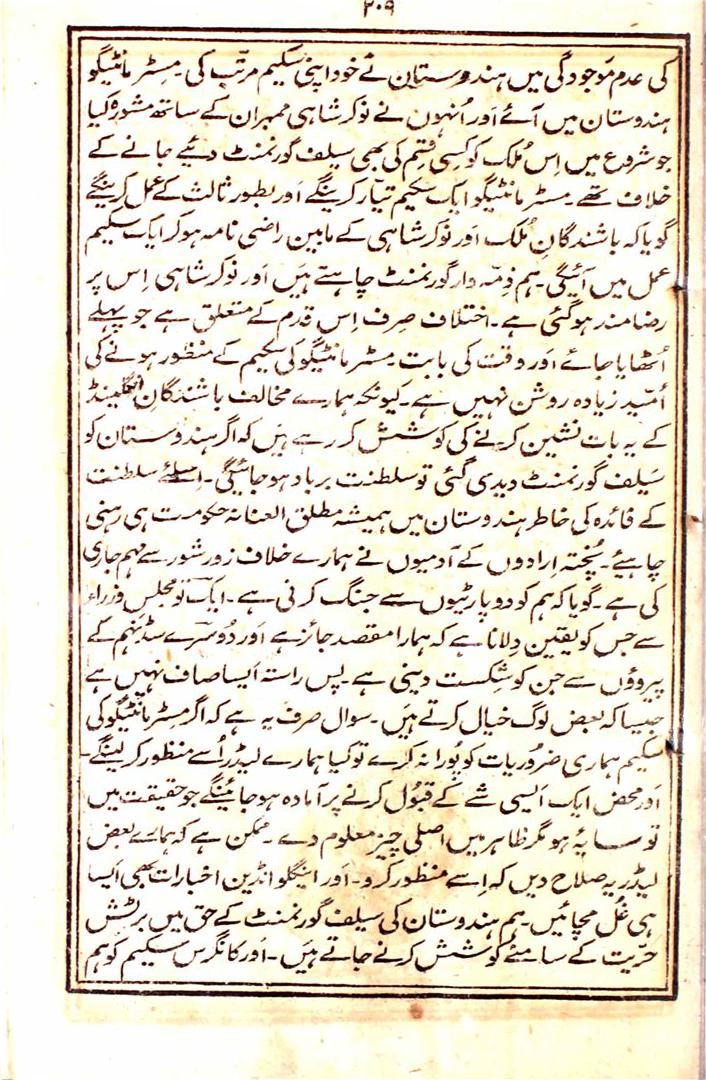 ۲۰۹
کی عدم موجودگی میں ہندوستان نے خود اپنی سکیم مرتب کی۔ مسٹر مانٹیگو
ہندوستان میں آئے اور اُنہوں نے نوکر شاہی ممبران کے ساتھ مشورہ کیا
جو شروع میں اِس مُلک کو کسی قِسِم کی بھی سیلف گورنمنٹ دئیے جانے کے
خلاف تھے۔ مسٹر مانٹیگو ایک سکیم تیار کرینگے اور بطور ثالث کے عمل کرینگے
گویا کہ باشندگانِ مُلک اور نوکر شاہی کے مابین راضی نامہ ہو کر ایک سکیم
عمل میں آئیگی۔ ہم ذِمّہ وار گورنمنٹ چاہتے ہیں اور نوکر شاہی اِس پر
رضامند ہو گئی ہے۔ اختلاف صِرف اِس قدم کے متعلق ہے جو پہلے
اُٹھایا جائے اور وقت کی بابت۔ مسٹر مانٹیگو کی سکیم کے منظور ہونے کی
اُمّید زیادہ روشن نہیں ہے۔ کیونکہ ہمارے مخالف باشندگانِ انگلینڈ
کے یہ بات نشین کرنے کی کوشش کر رہے ہیں کہ اگر ہندوستان کو
سَیلف گورنمنٹ دیدی گئی تو سلطنت برباد ہو جائیگی۔ اِسلئے سلطنت
کے فائدہ کی خاطر ہندوستان میں ہمیشہ مطلق العنانہ حکومت ہی رہنی
چاہیئے۔ پُختہ اِرادوں کے آدمیوں نے ہمارے خلاف زور شور سے مہم جاری
کی ہے۔ گویا کہ ہم کو دو پارٹیوں سے جنگ کرنی ہے۔ ایک تو مجلس وزراء
سے جس کو یقین دِلانا ہے کہ ہمارا مقصد جائز ہے اور دُوسرے سڈنہم کے
پیروؤں سے جن کو شِکست دینی ہے۔ پس راستہ ایسا صاف نہیں ہے
جیسا کہ بعض لوگ خیال کرتے ہیں۔ سوال صرف یہ ہے کہ اگر مِسٹر مانٹیگو کی
سکیم ہماری ضروریات کو پُورا نہ کرے تو کیا ہمارے لیڈر اُسے منظور کر لینگے۔
اور محض ایک ایسی شے کے قبُول کرنے پر آمادہ ہو جائینگے جو حقیقت میں
تو سایہ ہو مگر ظاہر میں اصلی چیز معلوم دے۔ ممکن ہے کہ ہمارے بعض
لیڈر یہ صلاح دیں کہ اِسے منظور کرو۔ اور اینگلو انڈین اخبارات بھی ایسا
ہی غُل مچائیں۔ ہم ہندوستان کی سیلف گورنمنٹ کے حق میں برٹش
حرّیت کے سامنے کوشش کرنے جاتے ہیں۔ اور کانگرس سکیم کو ہم